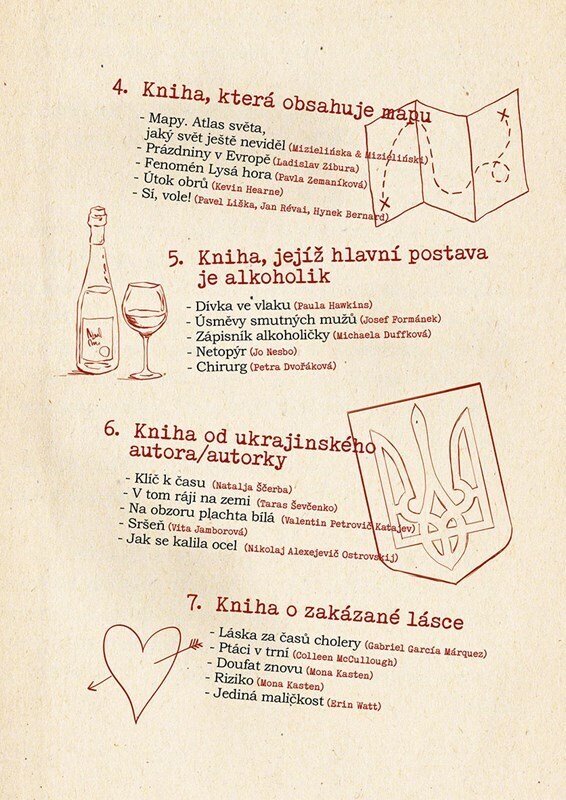 4. Kniha, která obsahuje mapu
- Mapy. Atlas světa,
jaký svět ještě neviděl (Mizielińska & Mizieliński)
- Prázdniny v Evropě (Ladislav Zibura)
- Fenomén Lysá hora (Pavla Zemaníková)
- Útok obrů (Kevin Hearne)
- Sí, vole! (Pavel Liška, Jan Révai, Hynek Bernard)
5. Kniha, jejíž hlavní postava
je alkoholik
- Dívka ve vlaku (Paula Hawkins)
- Úsměvy smutných mužů (Josef Formánek)
- Zápisník alkoholičky (Michaela Duffková)
- Netopýr (Jo Nesbo)
- Chirurg (Petra Dvořáková)
6. Kniha od ukrajinského
autora/autorky
- Klíč k času (Natalja Ščerba)
- V tom ráji na zemi (Taras Ševčenko)
- Na obzoru plachta bílá (Valentin Petrovič Katajev)
- Sršeň (Vita Jamborová)
- Jak se kalila ocel (Nikolaj Alexejevič Ostrovskij)
7. Kniha o zakázané lásce
- Láska za časů cholery (Gabriel García Márquez)
- Ptáci v trní (Colleen McCullough)
- Doufat znovu (Mona Kasten)
- Riziko (Mona Kasten)
- Jediná maličkost (Erin Watt)